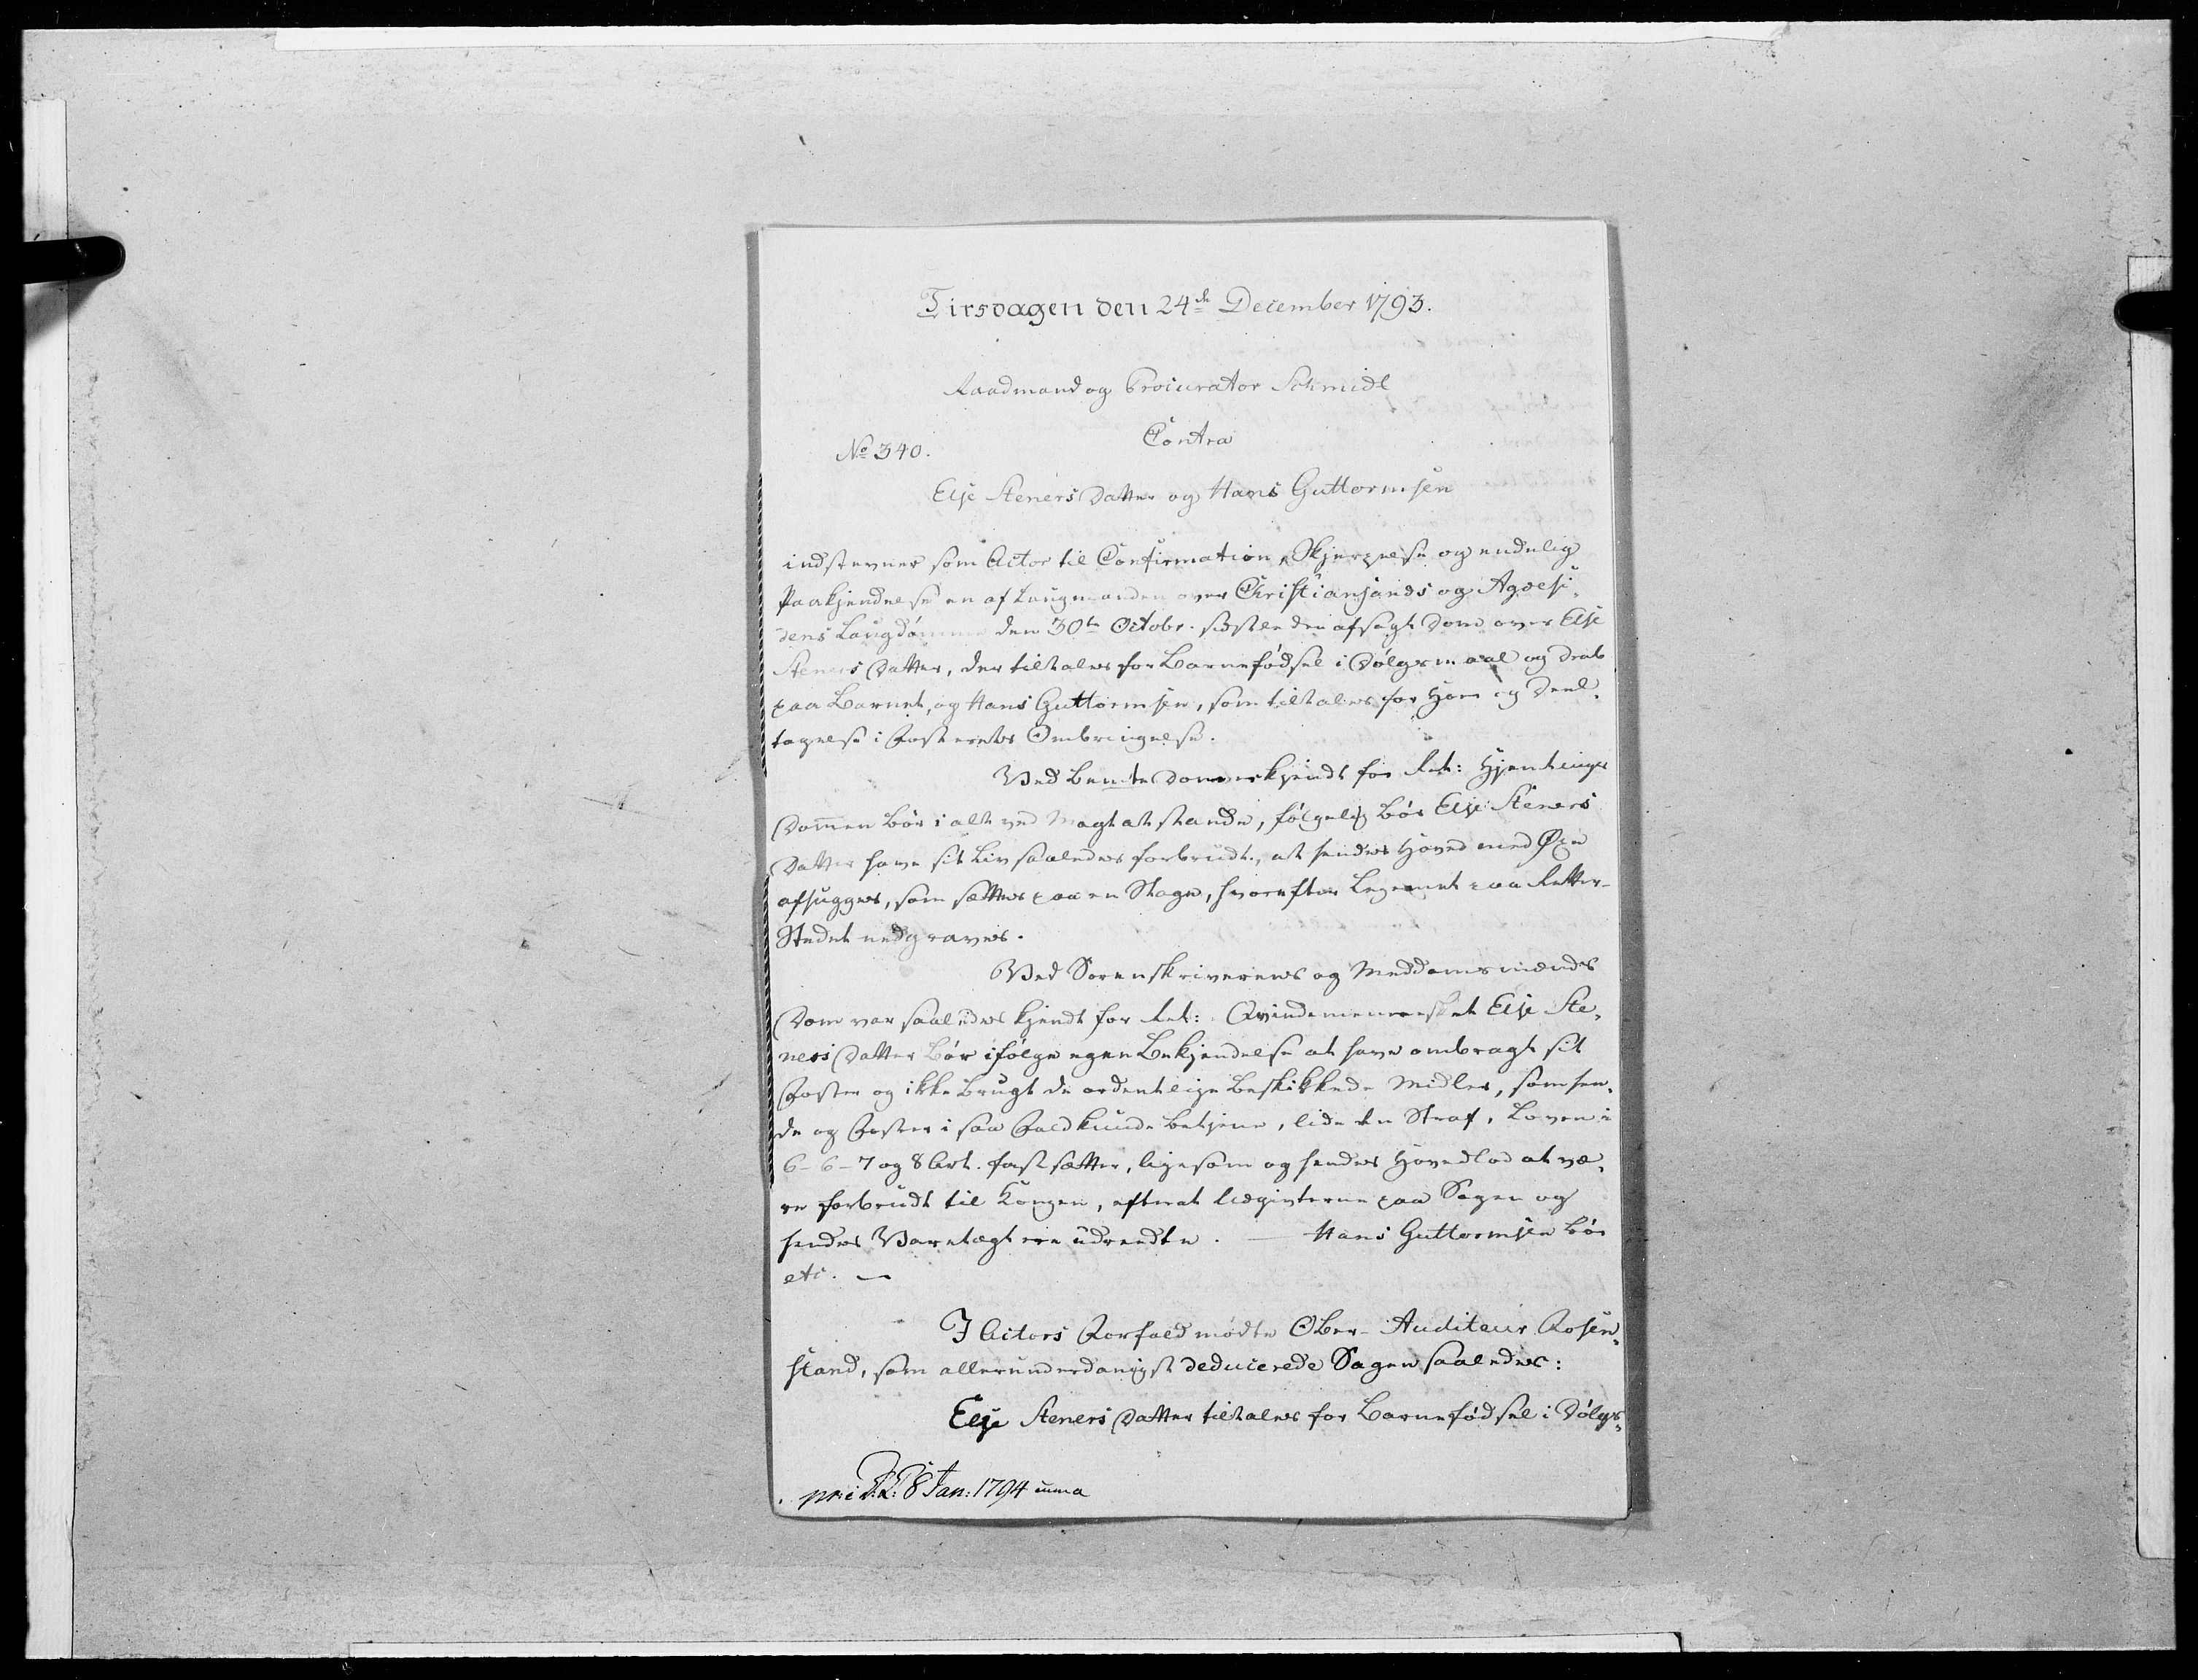 Tirsdagen den 24de December 1793.
Raadmand og Procurator Schmidt
Contra
No 340.
Else Steners Datter og Hans Guttormsen
indstevner som Actor til Confirmation, Skjerpelse og endelig
Paakjendelse en af Laugmanden over Christiansands og Agdesi-
dens Laugdømme den 30te Octobr. sidstleden afsagt Dom over Else
Steners Datter, der tiltales for Barnefødsel i Dølgsmaal og Drab
paa Barnet, og Hans Guttormsen, som tiltales for Hoer og Deel-
tagelse i Fosterets Ombringelse.
Ved bemte Dom er kjendt for Ret: Hjemtings
Dommen bør i alt ved Magt at stande, følgelig bør Else Steners
Datter have sit Liv saaledes forbrudt, at hendes Hoved med Øxe
afhugges, som sættes paa en Stage, hvorefter Legemet paa Retter-
Stedet nedgraves.
Ved Sorenskriverens og Meddomsmænds
Dom var saaledes kjendt for Ret: Qvindemennesket Else Ste-
ners Datter bør ifølge egen Bekjendelse at have ombragt sit
Foster og ikke brugt de ordentlige beskikkede Midler, som hen-
de og Foster i saa Fald kunde betjene, lide den Straf, Loven i
6-6-7 og 8 Art. fastsætter, ligesom og hendes Hovedlod at væ-
re forbrudt til Kongen, efterat Udgifterne paa Sagen og
hendes Varetægt ere udredte. — Hans Guttormsen bør
etc. —
I Actors Forfald mødte Ober-Auditeur Rosen-
stand, som allerunderdanigst deducerede Sagen saaledes:
Else Steners Datter tiltales for Barnefødsel i Dølgs-
8 Jan: 1794